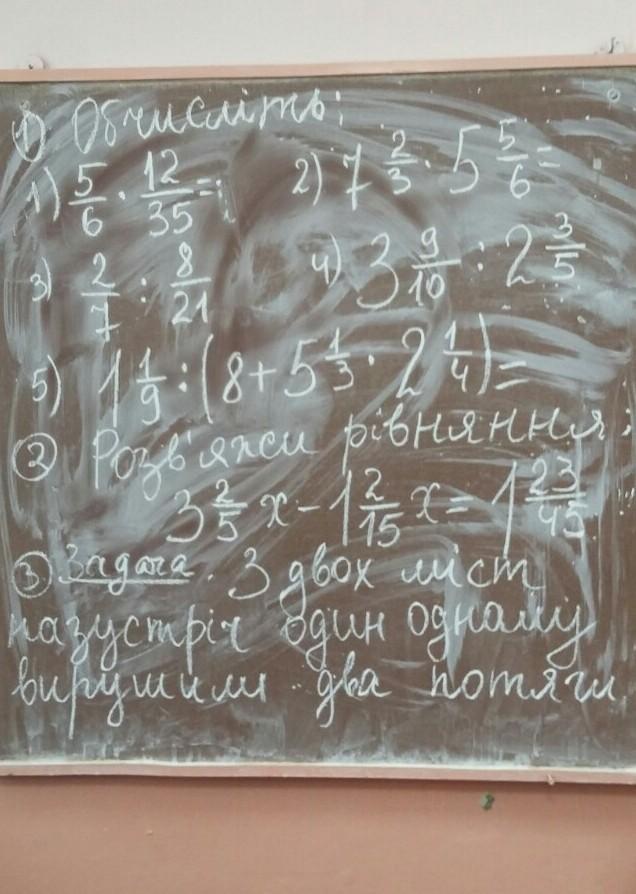 1) Обчисліть:
1) 5/6 · 12/35 =; 2) 7 2/3 · 5 5/6 =
3) 2/7 : 8/21 4) 3 9/10 : 2 3/5
5) 1 1/9 : (8 + 5 1/3 · 2 1/4) =
2) Розв'яжи рівняння:
3 2/5 x - 1 2/15 x = 1 23/45
3) Задача. З двох міст
назустріч один одному
вирушили два потяги